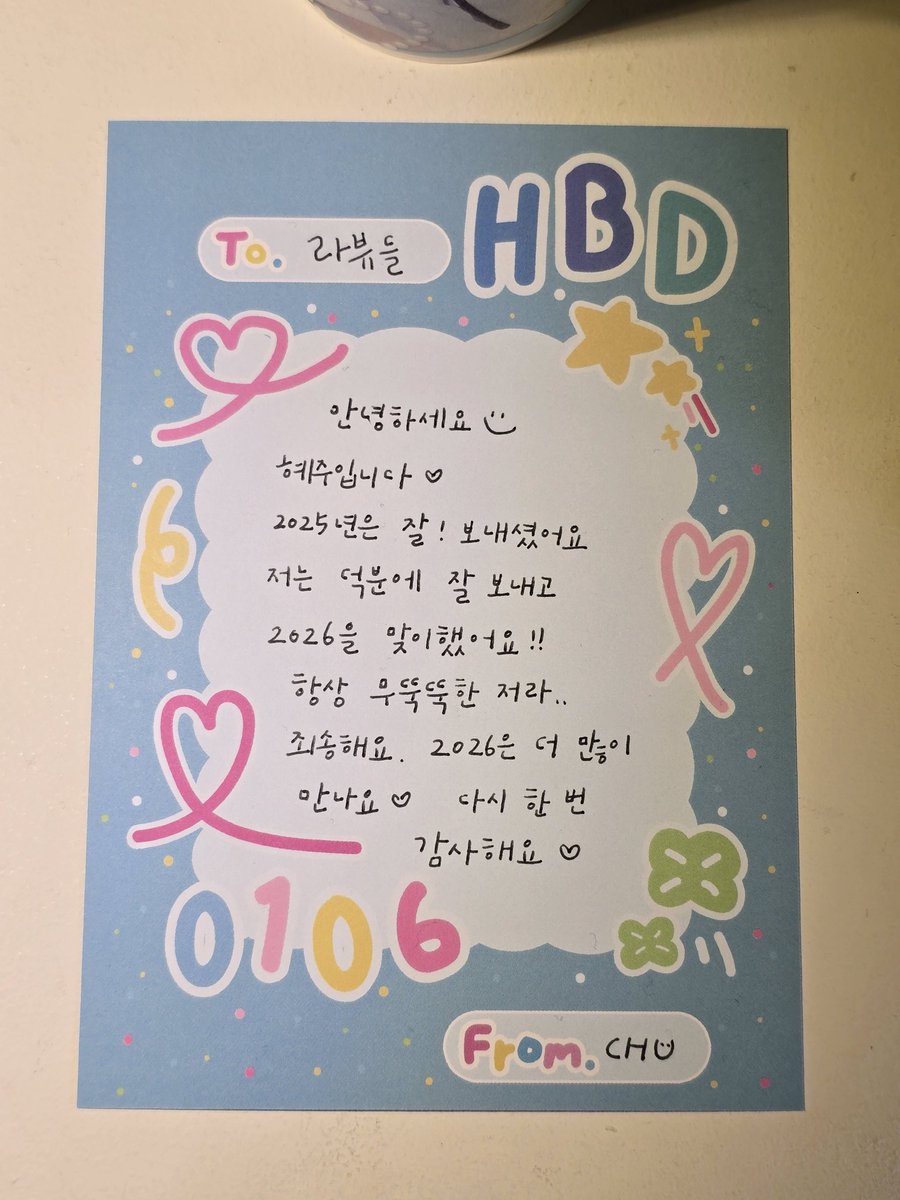 HBD
To. 라뷰들
안녕하세요
혜주입니다 ♡
2025년은 잘! 보내셨어요
저는 덕분에 잘 보내고
2026을 맞이했어요!!
항상 무뚝뚝한 저라..
죄송해요. 2026은 더 많이
만나요 ♡ 다시 한 번
감사해요 ♡
0106
From. CHU